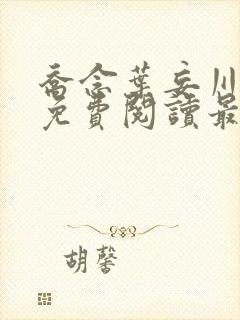 喬念葉妄川
免費閱讀最
胡馨